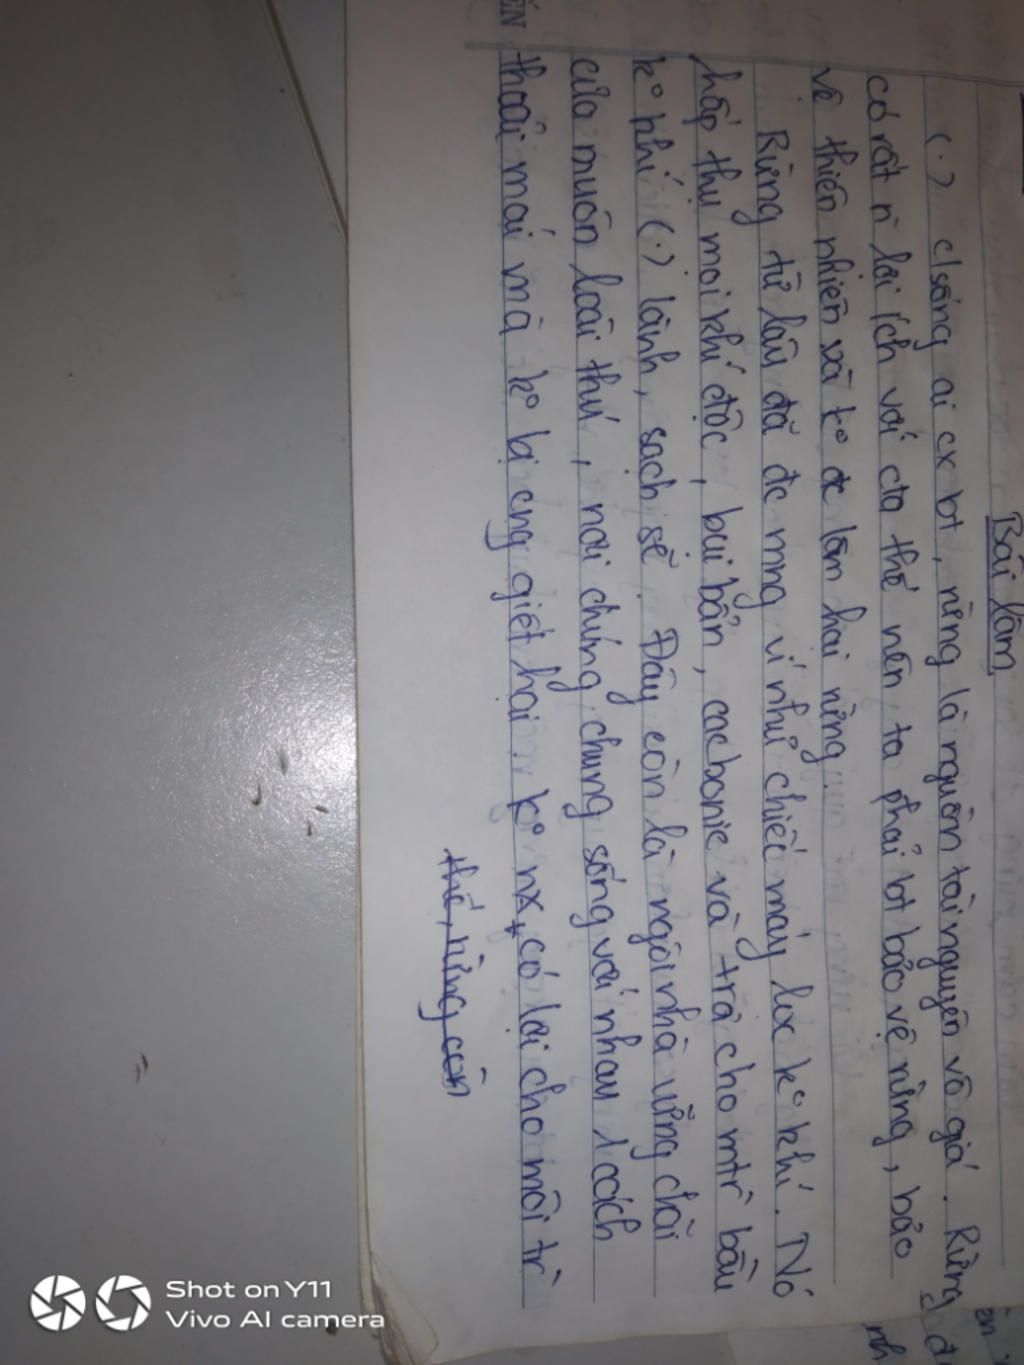 Bài làm
(.) c/sống ai cx bt, rừng là nguồn tài nguyên vô giá. Rừng
có rất n lợi ích với cta thế nên ta phải bt bảo vệ rừng, bảo
vệ thiên nhiên và ko đc làm hại rừng
Rừng từ lâu đã đc mng ví như chiếc máy lọc ko khí. Nó
hấp thụ mọi khí độc, bụi bẩn, cacbonic và trả cho mtr` bầu
ko khí (.) lành, sạch sẽ. Đây còn là ngôi nhà vững chãi
của muôn loài thú, nơi chúng chung sống với nhau 1 cách
thoải mái mà ko bị cng giết hại. ko nx, có lợi cho môi tr`
thế, rừng còn
ÊN
Shot on Y11
Vivo AI camera